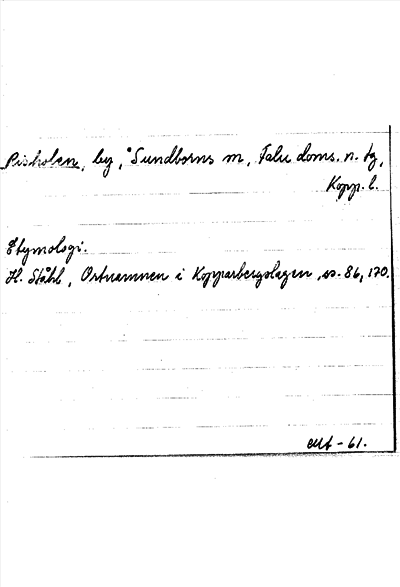 Pisholen, by, Sundborns sn, Falu doms. n. tg,
Kopp. l.
Etymologi.
H. Ståhl, Ortnamnen i Kopparbergslagen, ss. 86, 170.
-61.